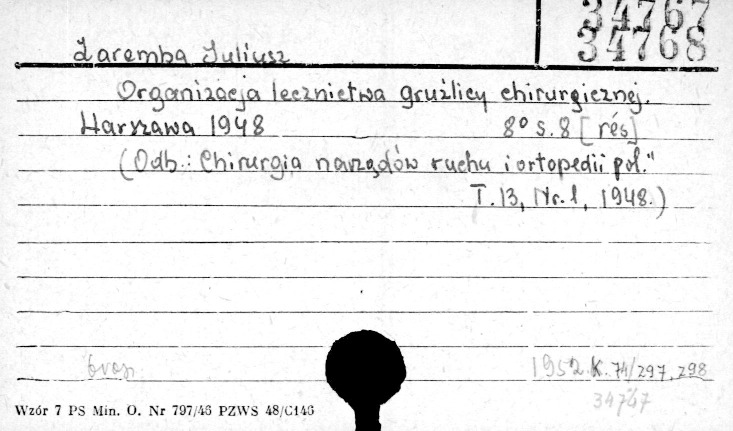 34767
34768
Zaremba Juliusz
Organizacja lecznictwa gruźlicy chirurgicznej.
Warszawa 1948 8° s. 8 [rés]
(Odb.: Chirurgia narządów ruchu i ortopedii pol."
T. 13, Nr. 1, 1948.)
1952 K. 74/297, 298
34747
Wzór 7 PS Min. O. Nr 797/46 PZWS 48/C146